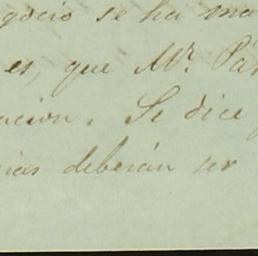 gocio se ha ma
es, que Mr. Pa
acion. Se dice
cias deberán ser